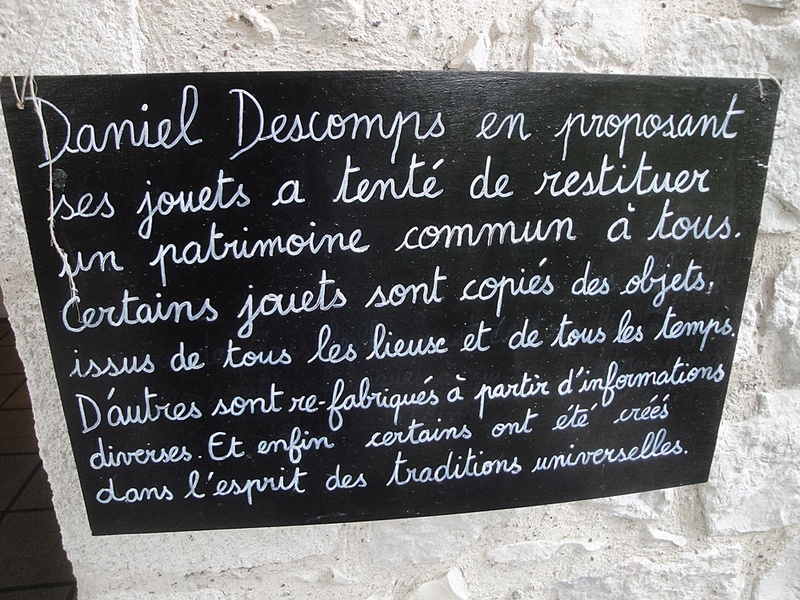 Daniel Descomps en proposant
ses jouets a tenté de restituer
un patrimoine commun à tous.
Certains jouets sont copiés des objets,
issus de tous les lieux et de tous les temps.
D'autres sont re-fabriqués à partir d'informations
diverses. Et enfin certains ont été créés
dans l'esprit des traditions universelles.